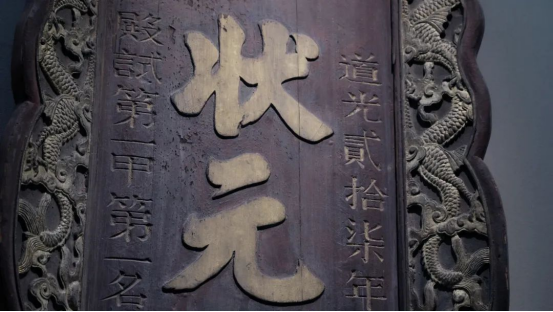 道光貳拾柒年
状元
殿試第一甲第一名